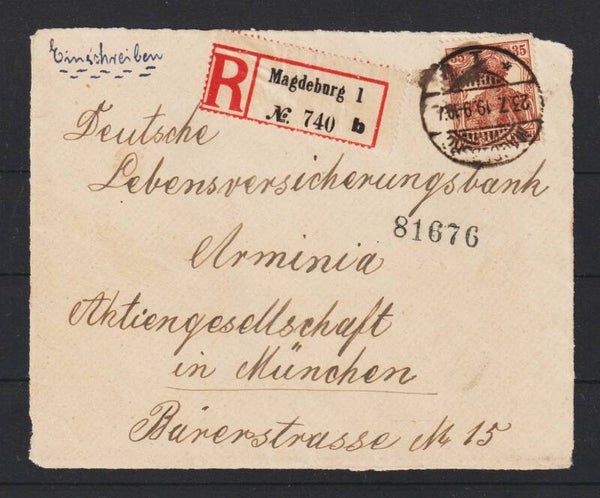 Einschreiben
R
Magdeburg 1
№ 740 b
35 35
23.7.19.9-10V
Deutsche
Lebensversicherungsbank
81676
Arminia
Aktiengesellschaft
in München
Bärerstrasse № 15